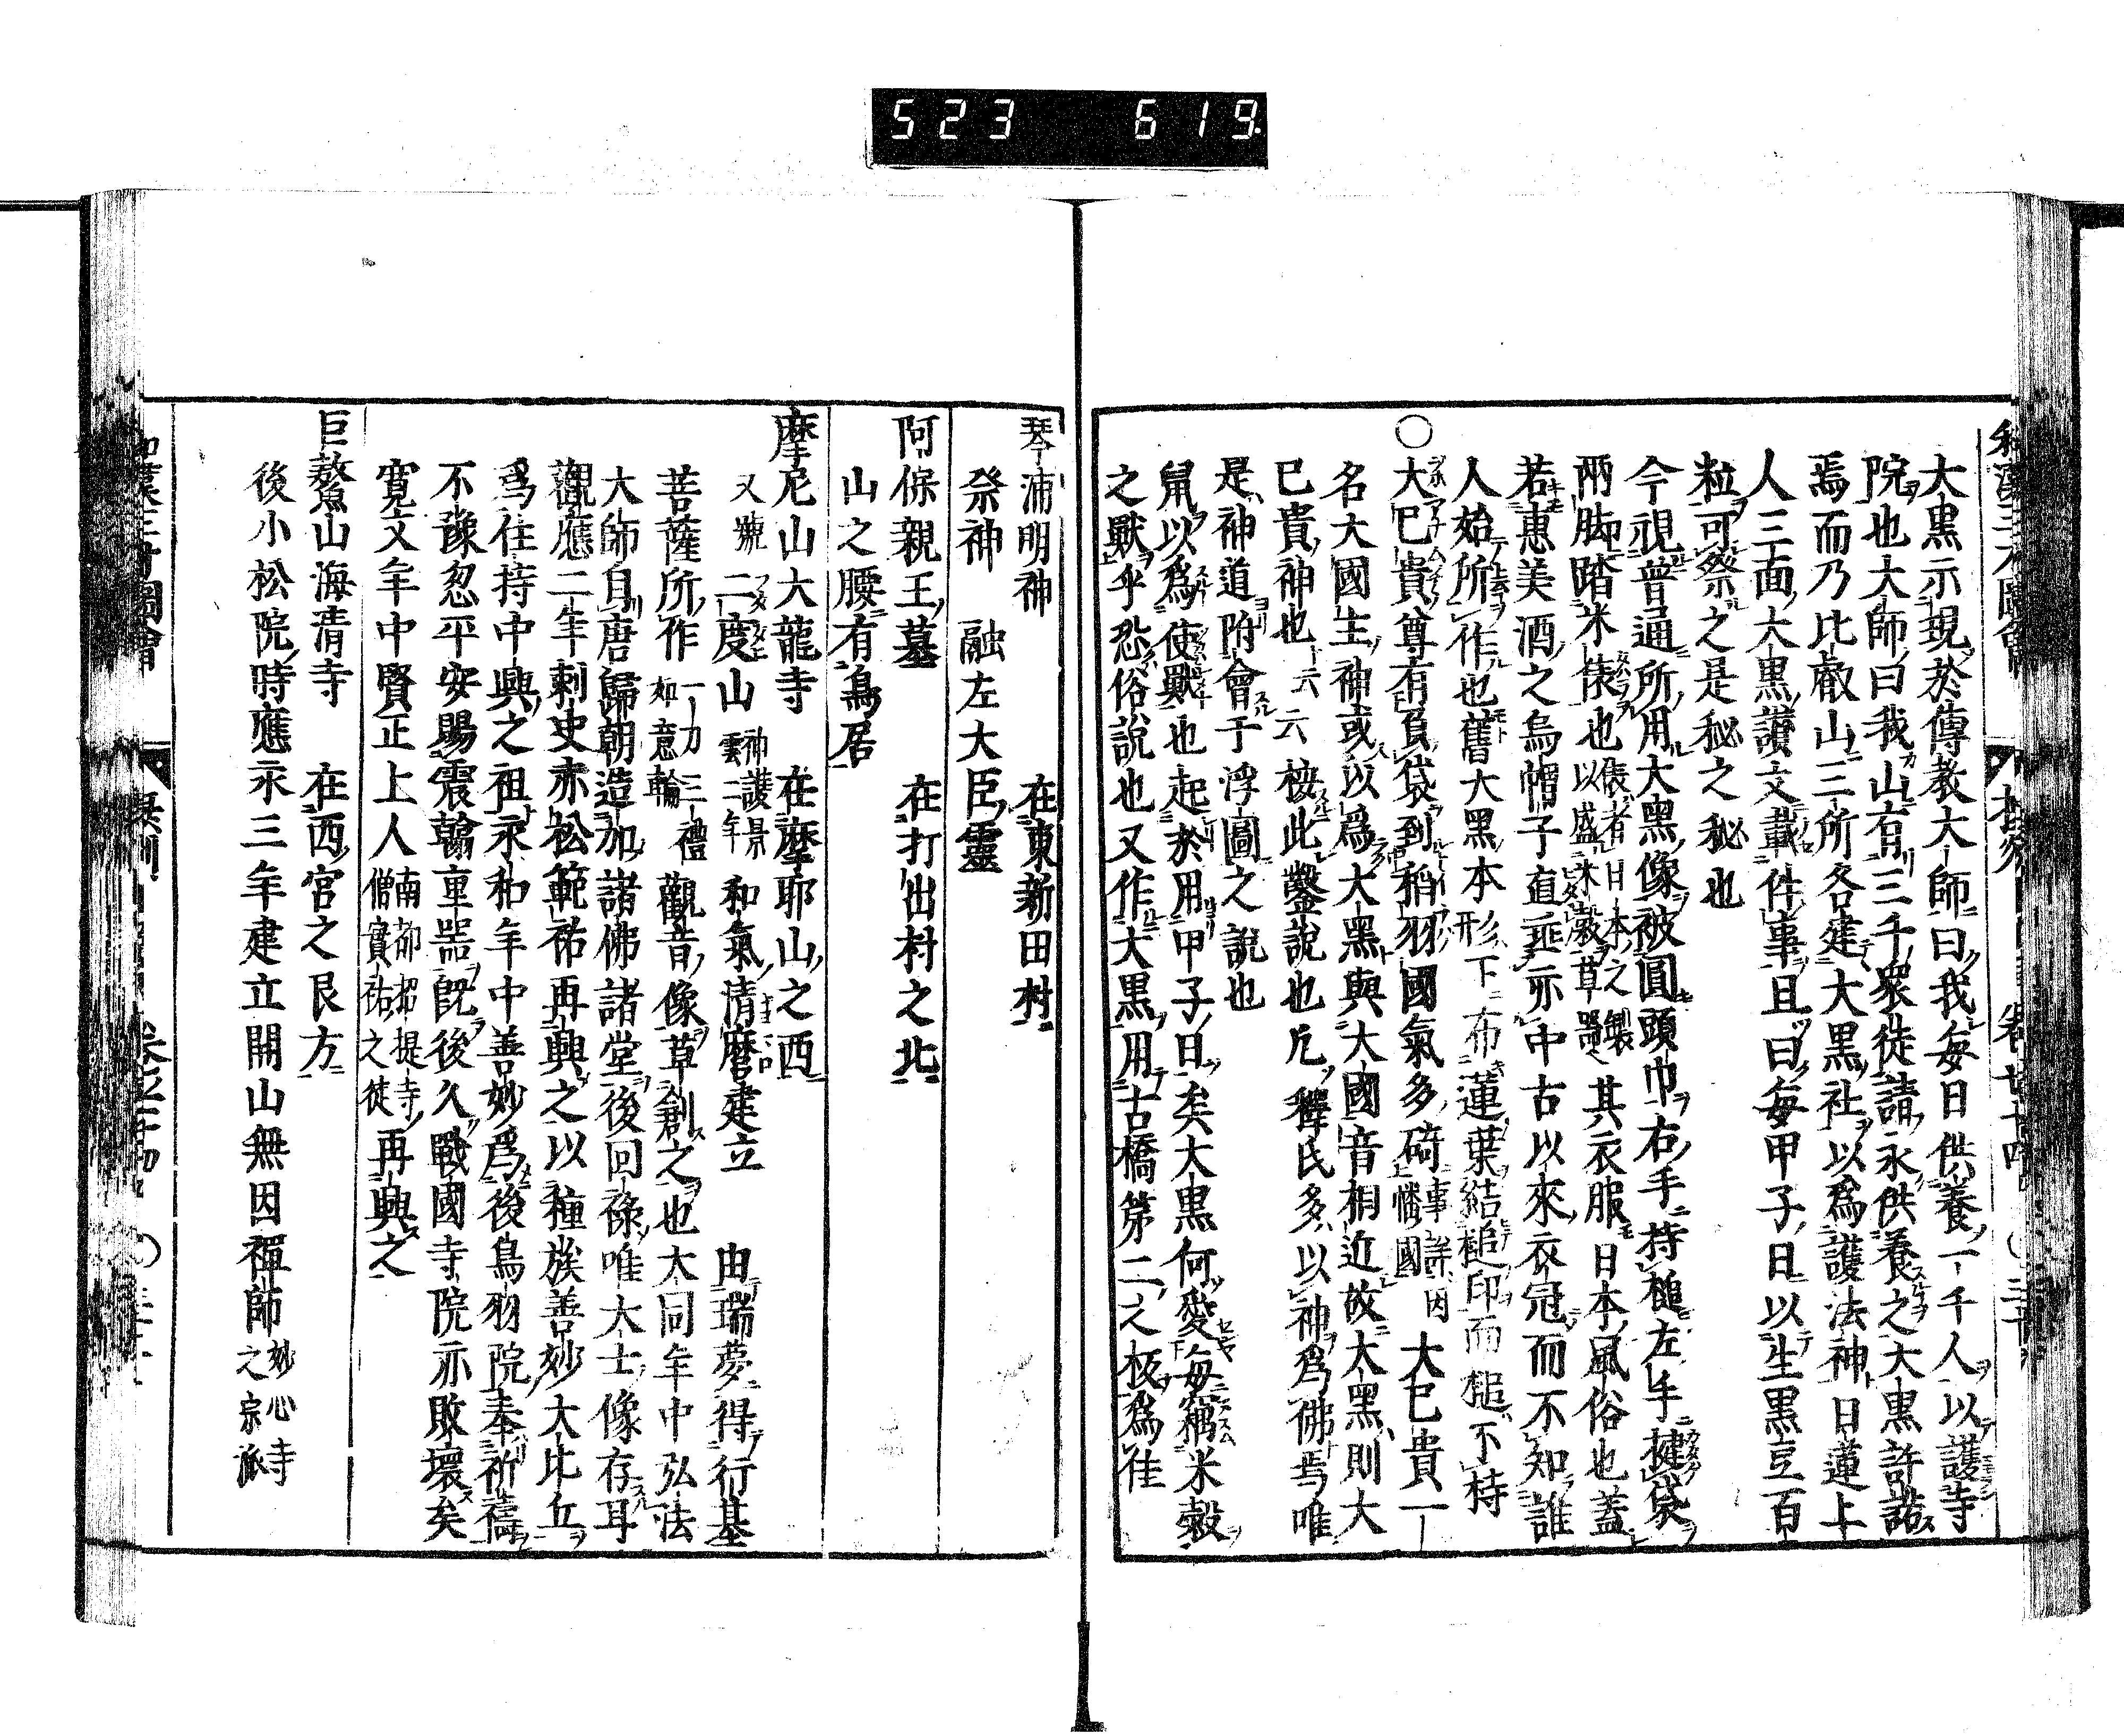 523 619.
大黒示現於傳教大師曰我毎日供養一千人以護寺
院也大師曰我山有三千衆徒請永供養之大黒許諾
焉而乃比叡山三所各建大黒社以爲護法神日蓮上
人三面大黒讃文載件事且曰毎甲子日以生黒豆百
粒可祭之是秘之秘也
今視普通所用大黒像被圓頭巾右手持槌左手揵袋
兩脚踏米俵也俵者日本之製以盛米穀草器其衣服日本風俗也蓋
若惠美酒之烏帽子直垂亦中古以來衣冠而不知誰
人始所作也舊大黒本形下布蓮葉結槌印而槌不持
○大巳貴尊有負袋到稻羽國氣多碕事詳因幡國大巳貴一
名大國主神或以爲大黒與大國音相近故大黒則大
巳貴神也云云桉此鑿說也凡釋氏多以神爲佛焉唯
是神道附會于浮圖之說也
鼠以爲使獸也起於用甲子日矣大黒何愛毎竊米穀
之獸乎恐俗說也又作大黒用古橋第二之板爲佳
琴浦明神 在東新田村
祭神 融左大臣靈
阿保親王墓 在打出村之北
山之腰有鳥居
摩尼山大龍寺 在摩耶山之西
又號二度山神護景雲二年和氣清麿建立 由瑞夢得行基
菩薩所作一刀三禮如意輪觀音像草創之也大同年中弘法
大師自唐歸朝造加諸佛諸堂後回祿唯大士像存耳
觀應二年刺史赤松範祐再興之以種族善妙大比丘
爲住持中興之祖永和年中善妙爲後鳥羽院奉祈禱
不豫忽平安賜震翰重噐旣後久戰國寺院亦敗壞矣
寛文年中賢正上人南都招提寺僧實祐之徒再興之
巨鰲山海清寺 在西宮之艮方
後小松院時應永三年建立開山無因禪師妙心寺之宗派